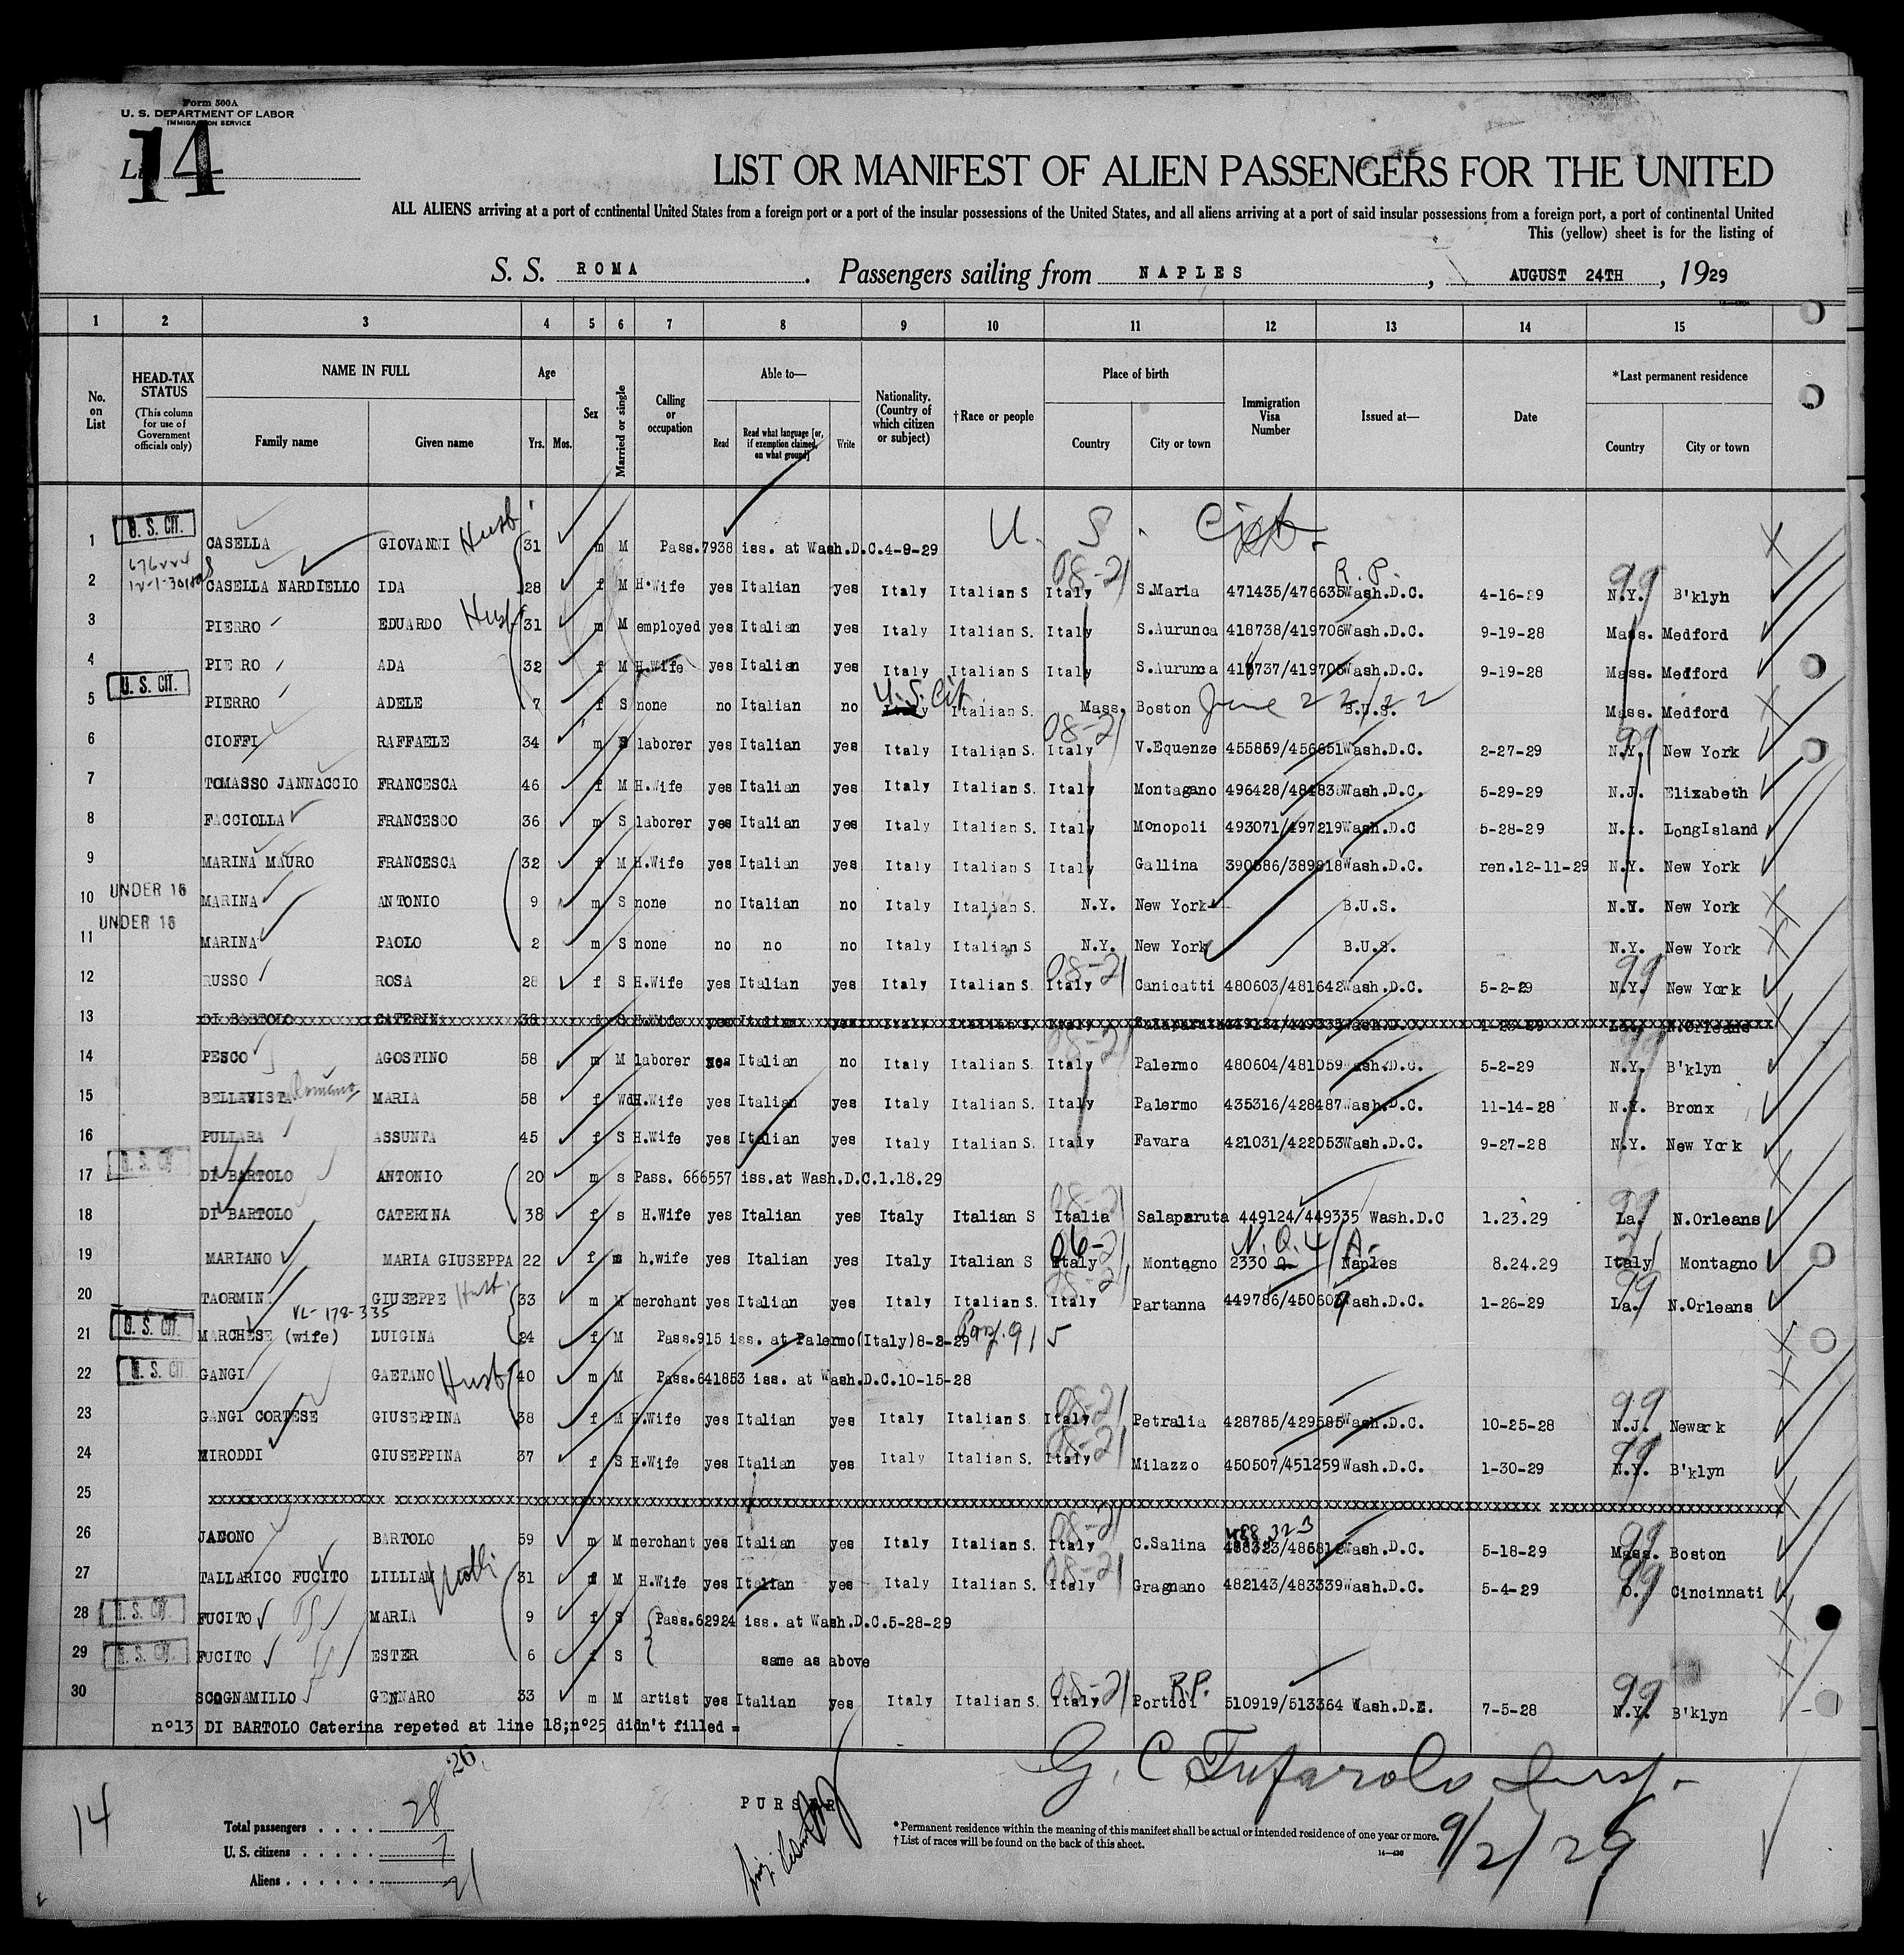 Form 500A
U. S. DEPARTMENT OF LABOR
IMMIGRATION SERVICE
14
LIST OR MANIFEST OF ALIEN PASSENGERS FOR THE UNITED
ALL ALIENS arriving at a port of continental United States from a foreign port or a port of the insular possessions of the United States, and all aliens arriving at a port of said insular possessions from a foreign port, a port of continental United
This (yellow) sheet is for the listing of
S. S. ROMA. Passengers sailing from NAPLES, AUGUST 24TH, 1929
1 2 3 4 5 6 7 8 9 10 11 12 13 14 15
No. on List
HEAD-TAX STATUS (This column for use of Government officials only)
NAME IN FULL Family name Given name
Age Yrs. Mos.
Sex
Married or single
Calling or occupation
Able to— Read Read what language [or, if exemption claimed, on what ground] Write
Nationality. (Country of which citizen or subject)
†Race or people
Place of birth Country City or town
Immigration Visa Number
Issued at—
Date
*Last permanent residence Country City or town
1 U. S. CIT. CASELLA GIOVANNI Husb 31 m M Pass.7938 iss. at Wash.D.C.4-9-29 U. S. Cit.
2 CASELLA NARDIELLO IDA 28 f M H.Wife yes Italian yes Italy Italian S Italy 08-21 S.Maria 471435/476635 Wash.D.C. R.P. 4-16-29 N.Y. 99 B'klyn
3 PIERRO EDUARDO Husb 31 m M employed yes Italian yes Italy Italian S. Italy S.Aurunca 418738/419706 Wash.D.C. 9-19-28 Mass. Medford
4 PIERRO ADA 32 f M H.Wife yes Italian yes Italy Italian S. Italy S.Aurunca 418737/419705 Wash.D.C. 9-19-28 Mass. Medford
5 U. S. CIT. PIERRO ADELE 7 f S none no Italian no U.S. Cit Italian S. Mass. Boston June 22/22 B.U.S. Mass. Medford
6 CIOFFI RAFFAELE 34 m S laborer yes Italian yes Italy Italian S. Italy 08-21 V.Equenze 455869/456651 Wash.D.C. 2-27-29 N.Y. 99 New York
7 TOMASSO JANNACCIO FRANCESCA 46 f M H.Wife yes Italian yes Italy Italian S. Italy Montagano Wash.D.C. 5-29-29 N.J. Elizabeth
8 FACCIOLLA FRANCESCO 36 m S laborer yes Italian yes Italy Italian S. Italy Monopoli 493071/497219 Wash.D.C 5-28-29 N.Y. LongIsland
9 MARINA MAURO FRANCESCA 32 f M H.Wife yes Italian yes Italy Italian S Italy Gallina 390586/389918 Wash.D.C. ren.12-11-29 N.Y. New York
10 UNDER 16 MARINA ANTONIO 9 m S none no Italian no Italy Italian S. N.Y. New York B.U.S. N.Y. New York
11 UNDER 16 MARINA PAOLO 2 m S none no no no Italy Italian S N.Y. New York B.U.S. N.Y. New York
12 RUSSO ROSA 28 f S H.Wife yes Italian yes Italy Italian S. Italy 08-21 Canicatti 480603/481642 Wash.D.C. 5-2-29 N.Y. 99 New York
13 DI BARTOLO CATERIN 38 f S H.Wife yes Italian yes Italy Italian S. Italy Salaparuta 449124/449335 Wash.D.C. 1-23-29 La. N.Orleans
14 PESCO AGOSTINO 58 m M laborer Italian no Italy Italian S. Italy 08-21 Palermo 480604/481059 Wash.D.C. 5-2-29 N.Y. 99 B'klyn
15 BELLAVISTA Romano MARIA 58 f Wd H.Wife yes Italian yes Italy Italian S. Italy Palermo 435316/428487 Wash.D.C. 11-14-28 N.Y. Bronx
16 PULLARA ASSUNTA 45 f S H.Wife yes Italian yes Italy Italian S. Italy Favara 421031/422053 Wash.D.C. 9-27-28 N.Y. New York
17 U. S. CIT. DI BARTOLO ANTONIO 20 m s Pass. 666557 iss.at Wash.D.C.1.18.29
18 DI BARTOLO CATERINA 38 f s H.Wife yes Italian yes Italy Italian S Italia 08-21 Salaparuta 449124/449335 Wash.D.C 1.23.29 La. 99 N.Orleans
19 MARIANO MARIA GIUSEPPA 22 f m h.wife yes Italian yes Italy Italian S Italy 06-21 Montagno 2330 N.Q.4/A- Naples 8.24.29 Italy 21 Montagno
20 TAORMIN GIUSEPPE Husb. 33 m M merchant yes Italian yes Italy Italian S. Italy 08-21 Partanna 449786/450609 Wash.D.C. 1-26-29 La. 99 N.Orleans
21 U. S. CIT. VL-178-335 MARCHESE (wife) LUIGINA 24 f M Pass.915 iss. at Palermo(Italy)8-2-29 915
22 U. S. CIT. GANGI GAETANO Husb 40 m M Pass.641853 iss. at Wash.D.C.10-15-28
23 GANGI CORTESE GIUSEPPINA 38 f M H.Wife yes Italian yes Italy Italian S. Italy 08-21 Petralia 428785/429585 Wash.D.C. 10-25-28 N.J. 99 Newark
24 MIRODDI GIUSEPPINA 37 f S H.Wife yes Italian yes Italy Italian S. Italy 08-21 Milazzo 450507/451259 Wash.D.C. 1-30-29 N.Y. 99 B'klyn
25
26 JACONO BARTOLO 59 m M merchant yes Italian yes Italy Italian S. Italy 08-21 C.Salina 488323 Wash.D.C. 5-18-29 Mass. 99 Boston
27 TALLARICO FUCITO LILLIAM 31 f M H.Wife yes Italian yes Italy Italian S. Italy 08-21 Gragnano 482143/483339 Wash.D.C. 5-4-29 O. 99 Cincinnati
28 U. S. CIT. FUCITO MARIA 9 f S Pass.62924 iss. at Wash.D.C.5-28-29
29 U. S. CIT. FUCITO ESTER 6 f S same as above
30 SCOGNAMILLO GENNARO 33 m M artist yes Italian yes Italy Italian S. Italy 08-21 Portici R.P. 510919/513364 Wash.D.E. 7-5-28 N.Y. 99 B'klyn
n°13 DI BARTOLO Caterina repeted at line 18;n°25 didn't filled =
14
26.
Total passengers . . . . 28
U. S. citizens . . . . . 7
Aliens . . . . . . 21
PURSER
G. C. Tufarolo Insp.
9/2/29
*Permanent residence within the meaning of this manifest shall be actual or intended residence of one year or more.
†List of races will be found on the back of this sheet.
14—430